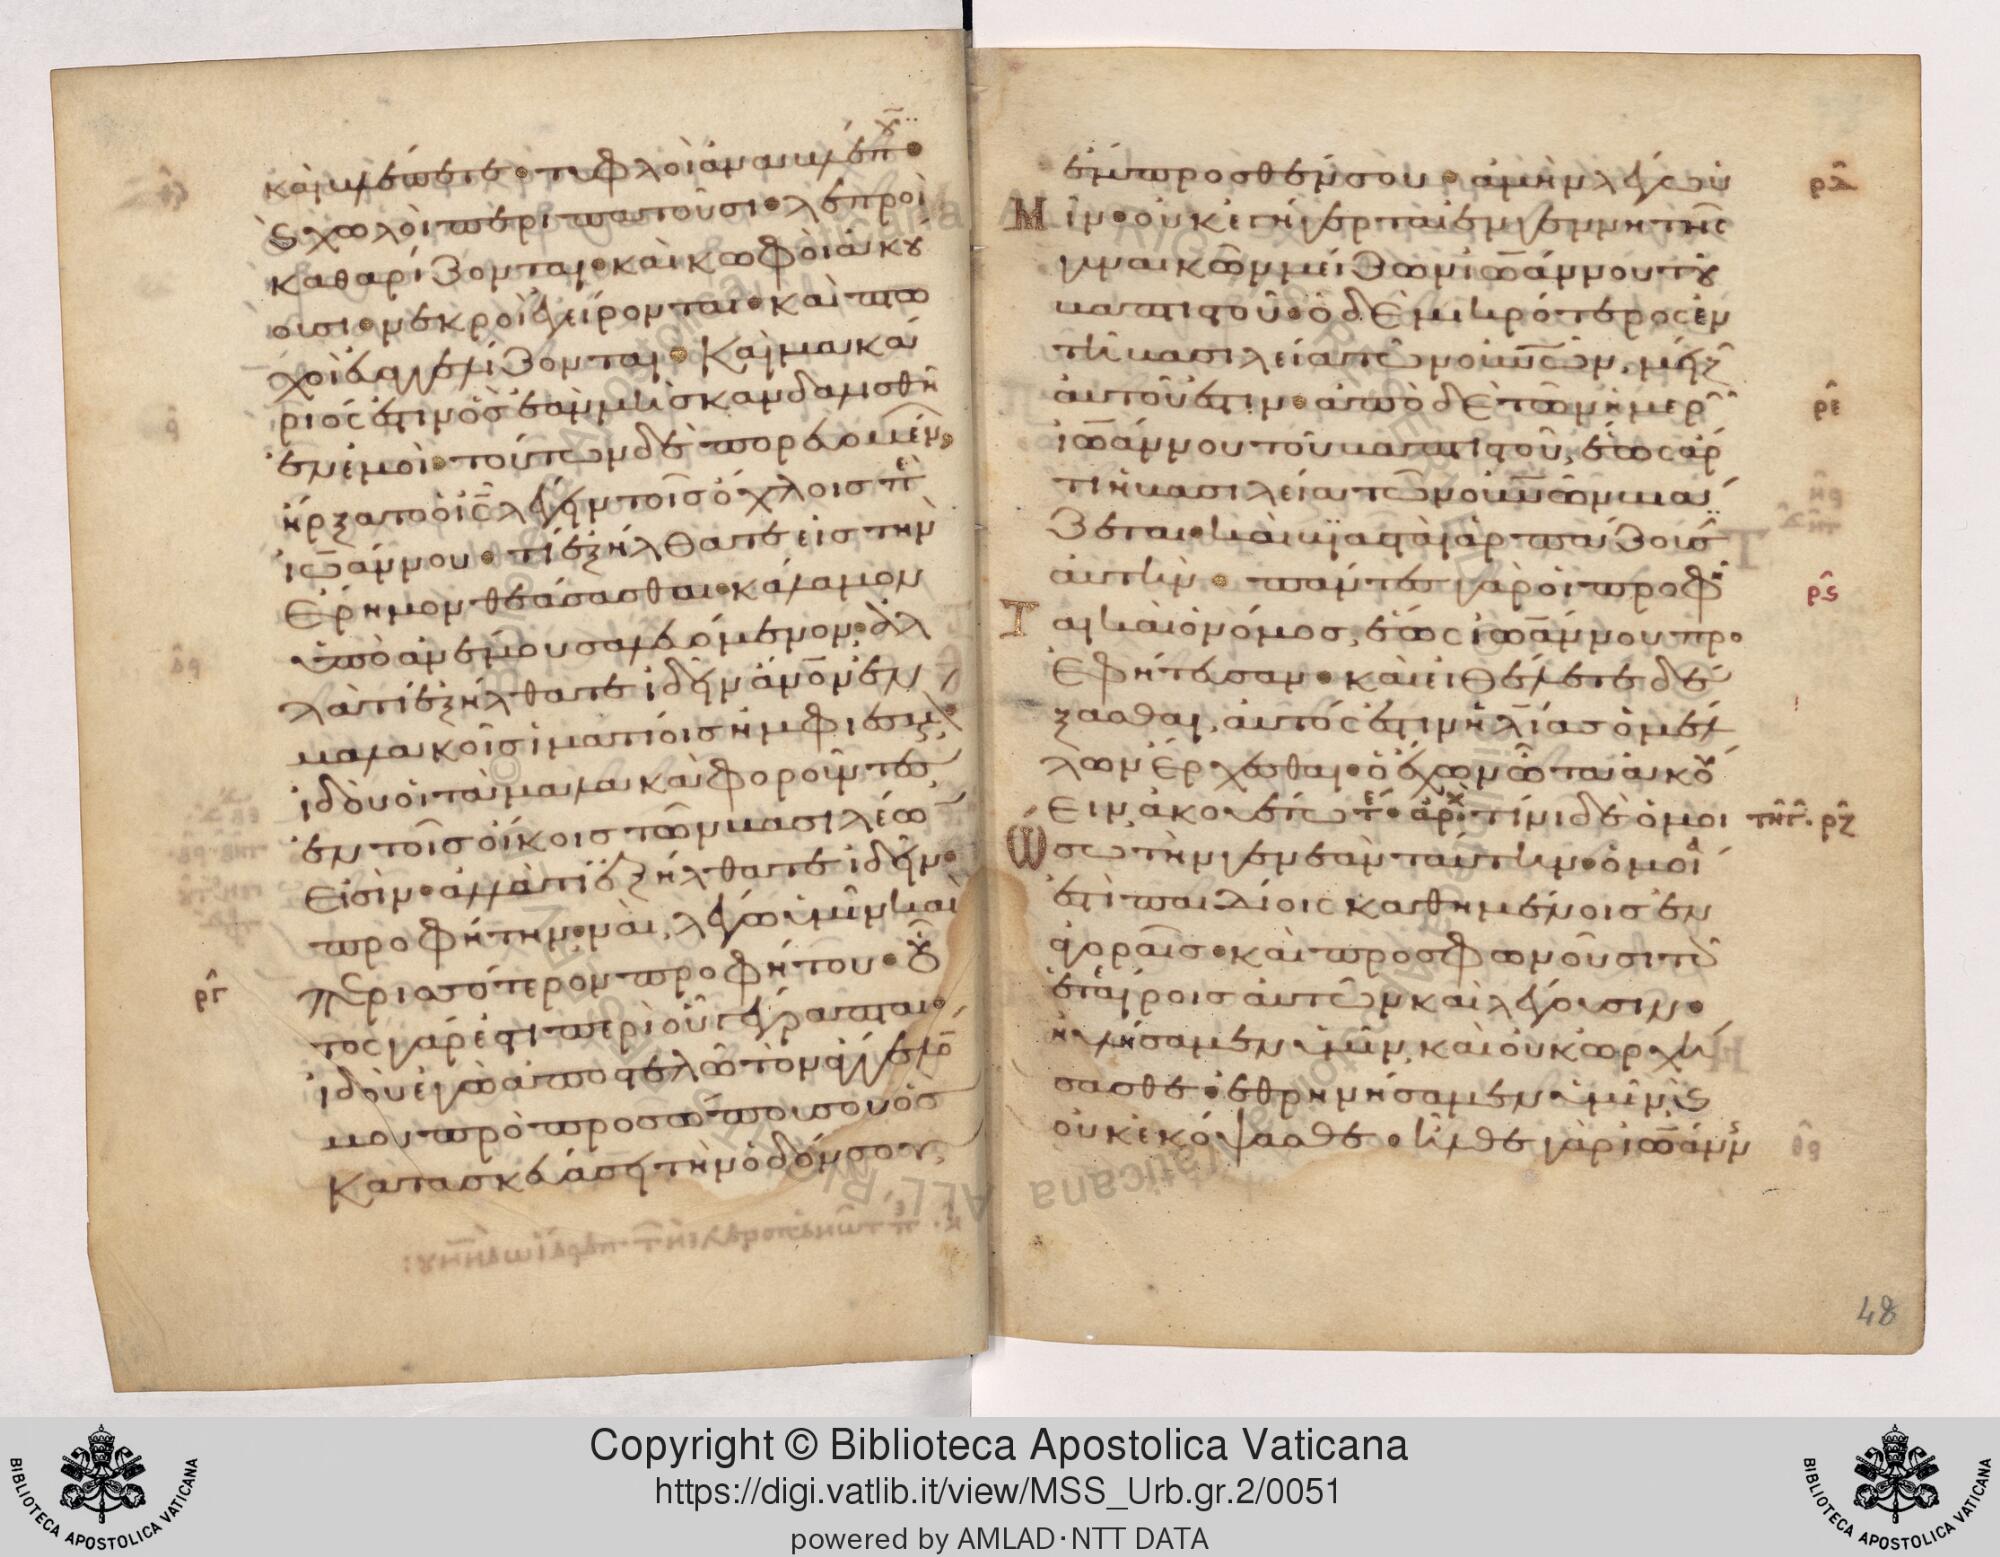 καὶ βλέπετε· τυφλοὶ ἀναβλέπου
καὶ χωλοὶ περιπατοῦσι· λεπροὶ
καθαρίζονται· καὶ κωφοὶ ἀκού
ουσι· νεκροὶ ἐγείρονται· καὶ πτω
χοὶ εὐαγγελίζονται· Καὶ μακά
ριός ἐστιν ὃς ἐὰν μὴ σκανδαλισθῆ
ἐν ἐμοί· τούτων δὲ πορευομέν
ἤρξατο ὁ ις λέγειν τοῖς ὄχλοις πε
ἰωάννου· τί ἐξήλθατε εἰς τὴν
ἔρημον θεάσασθαι· κάλαμον
ὑπὸ ἀνέμου σαλευόμενον· ἀλ
λὰ τί ἐξήλθατε ἰδεῖν ἀνον ἐν
μαλακοῖς ἱματίοις ἠμφιεσμ
ἰδοὺ οἱ τὰ μαλακὰ φοροῦντες
ἐν τοῖς οἴκοις τῶν βασιλέω
εἰσίν· ἀλλὰ τί ἐξήλθατε ἰδεῖν·
προφήτην· ναὶ, λέγω ὑμῖν καὶ
περισσότερον προφήτου· οὗ
τος γάρ ἐστι περὶ οὗ γέγραπται·
ἰδοὺ ἐγὼ ἀποστελῶ τὸν ἄγγελο
μου πρὸ προσώπου σου ὃς
κατασκευάσει τὴν ὁδόν σου
ργ
ἔμπροσθέν σου· ἀμὴν λέγω ὑ
μῖν· οὐκ ἐγήγερται ἐν γεννητοῖς
γυναικῶν μείζων ἰωάννου τοῦ
βαπτιστοῦ· ὁ δὲ μικρότερος ἐν
τῆ βασιλεία τῶν οὐνῶν, μείζ
αὐτοῦ ἐστιν· ἀπὸ δὲ τῶν ἡμερ
ἰωάννου τοῦ βαπτιστοῦ, ἕως ἄρ
τι ἡ βασιλεία τῶν οὐνῶν βιά
ζεται· καὶ βιασταὶ ἁρπάζουσ
αὐτήν· πάντες γὰρ οἱ προφῆ
ται καὶ ὁ νόμος, ἕως ἰωάννου προ
εφήτευσαν· καὶ εἰ θέλετε δέ
ξασθαι, αὐτός ἐστιν ἠλίας ὁ μέλ
λων ἔρχεσθαι· ὁ ἔχων ὦτα ἀκού
ειν ἀκουέτω τε· ἀρχ τίνι δὲ ὁμοι
ώσω τὴν γενεὰν ταύτην· ὁμοί
ἐστὶ παιδίοις καθημένοις ἐν
ἀγοραῖς· καὶ προσφωνοῦσι τοῖ
ἑταίροις αὐτῶν καὶ λέγουσιν·
ηὐλήσαμεν ὑμῖν, καὶ οὐκ ὠρχή
σασθε· ἐθρηνήσαμεν ὑμῖν καὶ
οὐκ ἐκόψασθε· ἦλθε γὰρ ἰωάνν
ρδ
ρε
ρς
ρζ
48
Copyright © Biblioteca Apostolica Vaticana
https://digi.vatlib.it/view/MSS_Urb.gr.2/0051
powered by AMLAD·NTT DATA
BIBLIOTECA APOSTOLICA VATICANA
BIBLIOTECA APOSTOLICA VATICANA